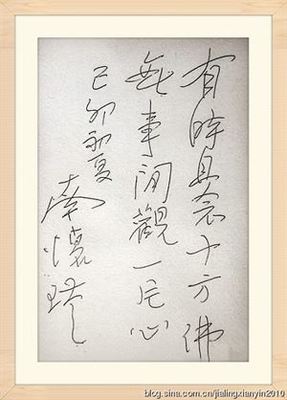 有時且念十方佛
無事閒觀一片心
己卯初夏
南懷瑾
blog.sina.com.cn/jialingxianyin2010